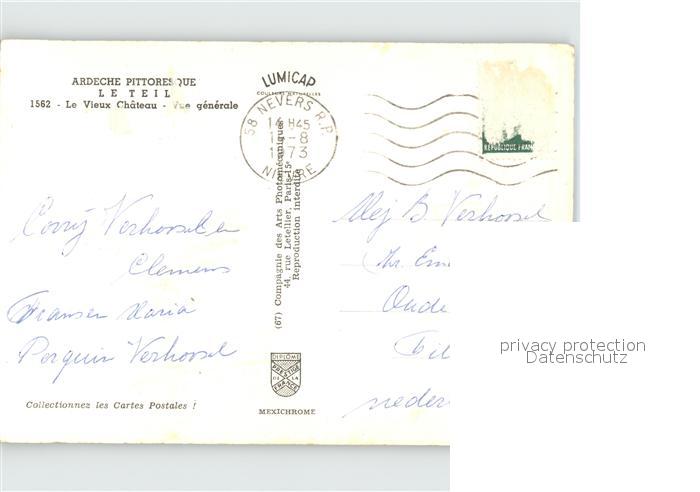 ARDECHE PITTORESQUE
LE TEIL
1562 - Le Vieux Château - Vue générale
LUMICAP
COULEURS NATURELLES
58 NEVERS R.P.
14 H45
1-8
1973
NIEVRE
REPUBLIQUE FRAN
(67) Compagnie des Arts Photomécaniques
44, rue Letellier, Paris-15e
Reproduction interdite
Verhoosel en
Clemens
Fransen Maria
Verhoosel
Mej B. Verhoosel
Oude
neder
DIPLOME
PRESTIGE
DE LA
FRANCE
MEXICHROME
Collectionnez les Cartes Postales !
privacy protection
Datenschutz